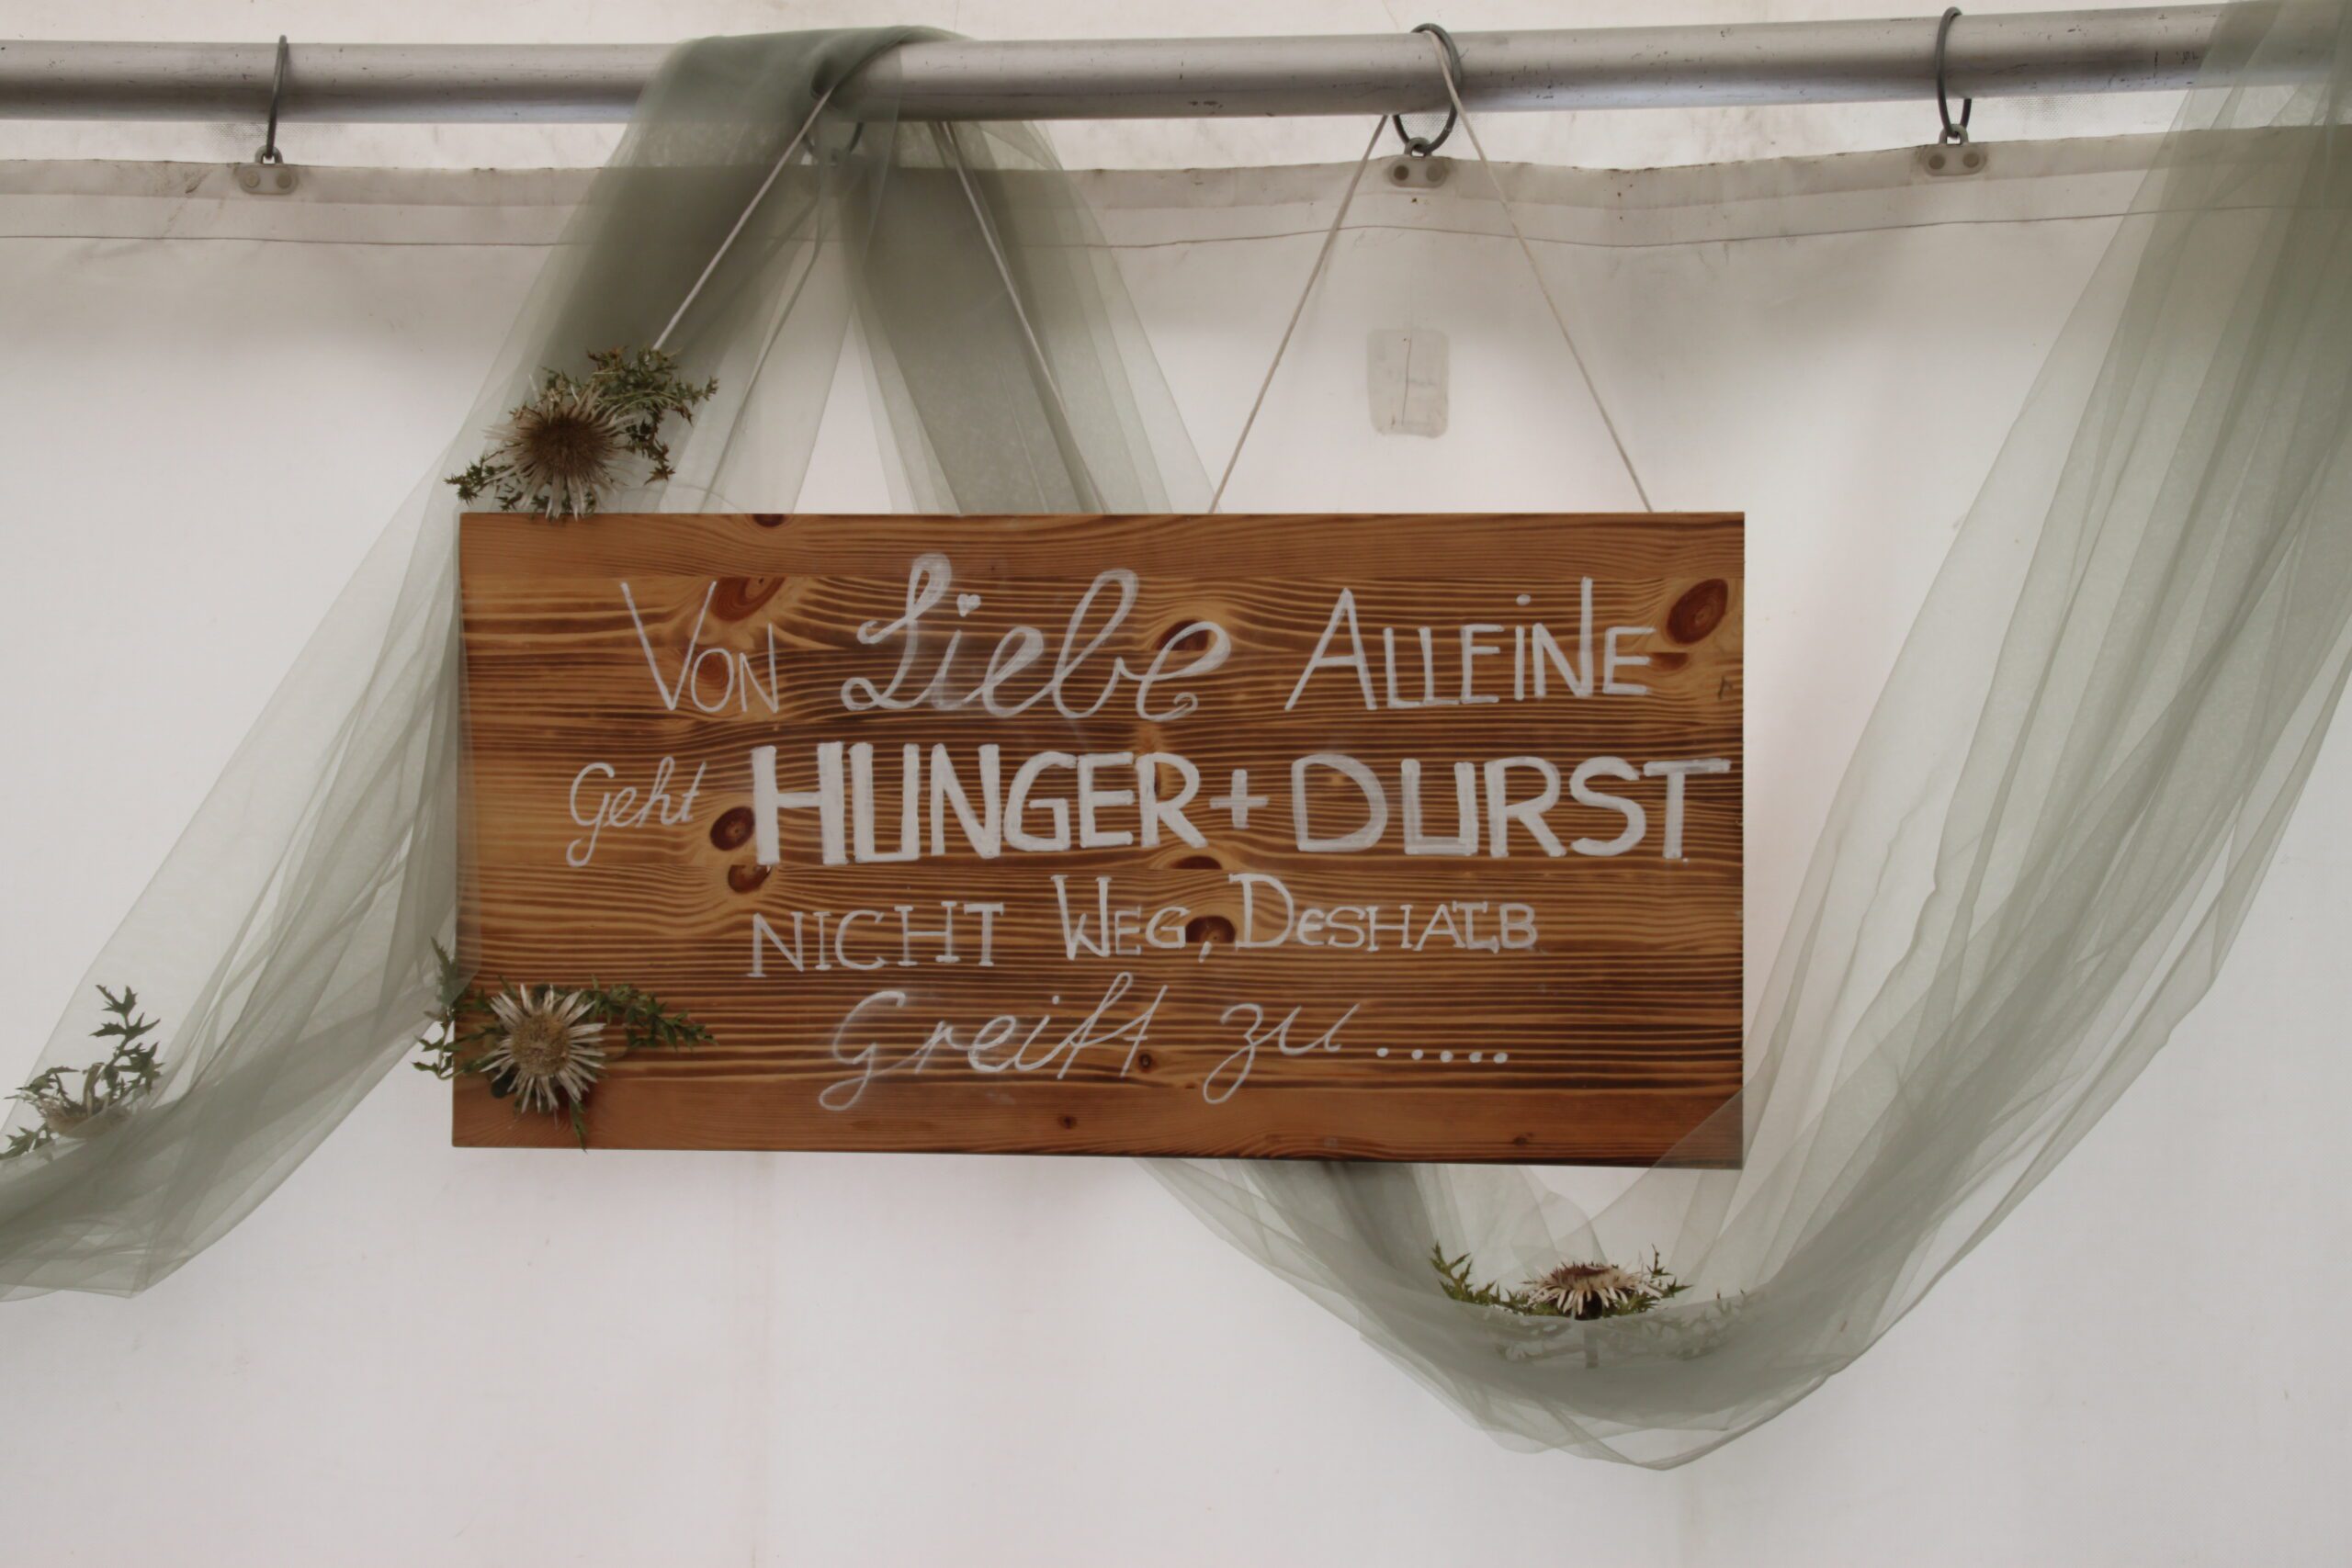 Von Liebe ALLEiNE
Geht HUNGER + DURST
NICHT WEG, DESHALB
Greift zu.....